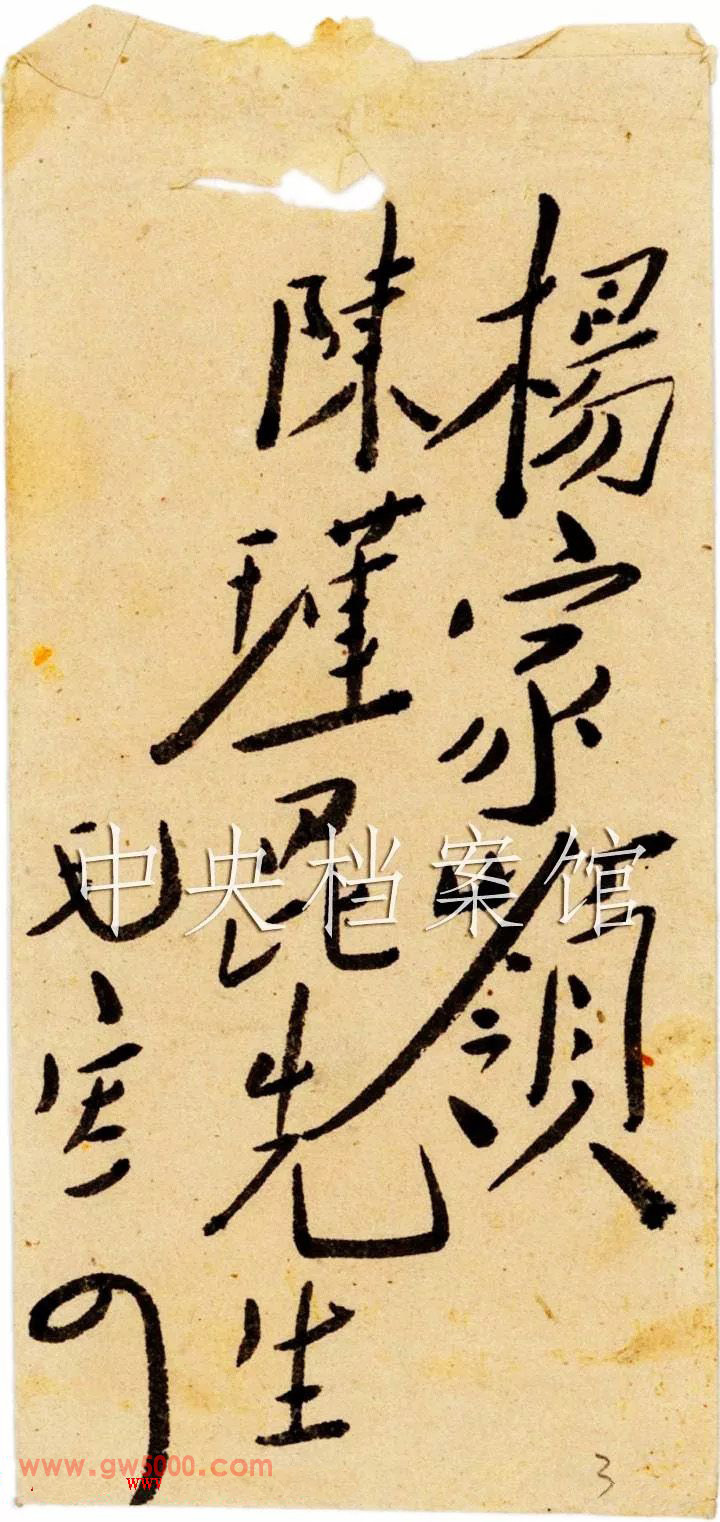 楊家嶺
陳瑾昆先生
毛寄
中央档案馆
www.gw5000.com
www
3